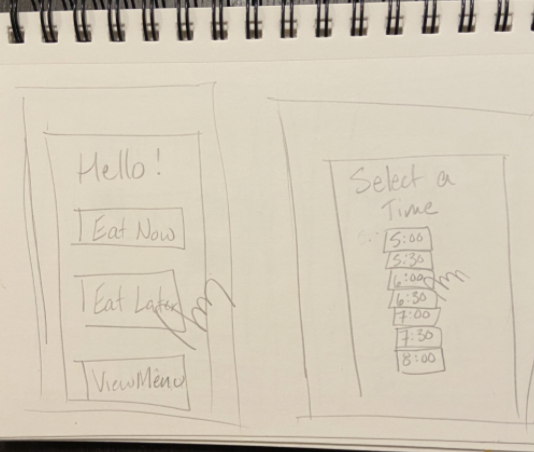 Hello!
Eat Now
Eat Later
View Menu
Select a
Time
5:00
5:30
6:00
6:30
7:00
7:30
8:00